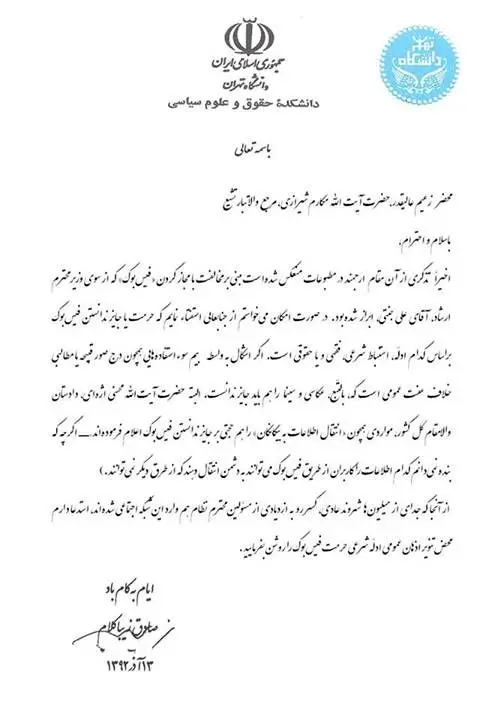 جمهوری اسلامی ایران
دانشگاه تهران
دانشکدهٔ حقوق و علوم سیاسی
دانشگاه تهران
باسمه تعالی
محضر زعیم عالیقدر، حضرت آیت الله مکارم شیرازی، مرجع والاتبار تشیع
با سلام و احترام،
اخیراً تذکری از آن مقام ارجمند در مطبوعات منعکس شده است مبنی بر مخالفت با مجاز کردن «فیس بوک» که از سوی وزیر محترم
ارشاد، آقای علی جنتی، ابراز شده بود. در صورت امکان می‌خواستم از جنابعالی استفتاء نمایم که حرمت یا جایز ندانستن فیس بوک
براساس کدام ادله، استنباط شرعی، فقهی و یا حقوقی است. اگر اشکال به واسطه بیم سوء استفاده‌هایی همچون درج صور قبیحه یا مطالبی
خلاف عفت عمومی است که، بالطبع، عکاسی و سینما را هم باید جایز ندانست. البته حضرت آیت الله محسنی اژه‌ای، دادستان
والامقام کل کشور، مواردی همچون «انتقال اطلاعات به بیگانگان» را هم حجتی بر جایز ندانستن فیس بوک اعلام فرموده‌اند__ اگرچه که
بنده نمی‌دانم کدام اطلاعات را کاربران از طریق فیس بوک می‌توانند به دشمن انتقال دهند که از طرق دیگر نمی‌توانند.)
از آنجا که جدای از میلیون‌ها شهروند عادی، کسر رو به ازدیادی از مسؤلین محترم نظام هم وارد این شبکه اجتماعی شده‌اند، استدعا دارم
محض تنویر اذهان عمومی ادله شرعی حرمت فیس بوک را روشن بفرمایید.
ایام به کام باد
صادق زیباکلام
۱۳ آذر ۱۳۹۲